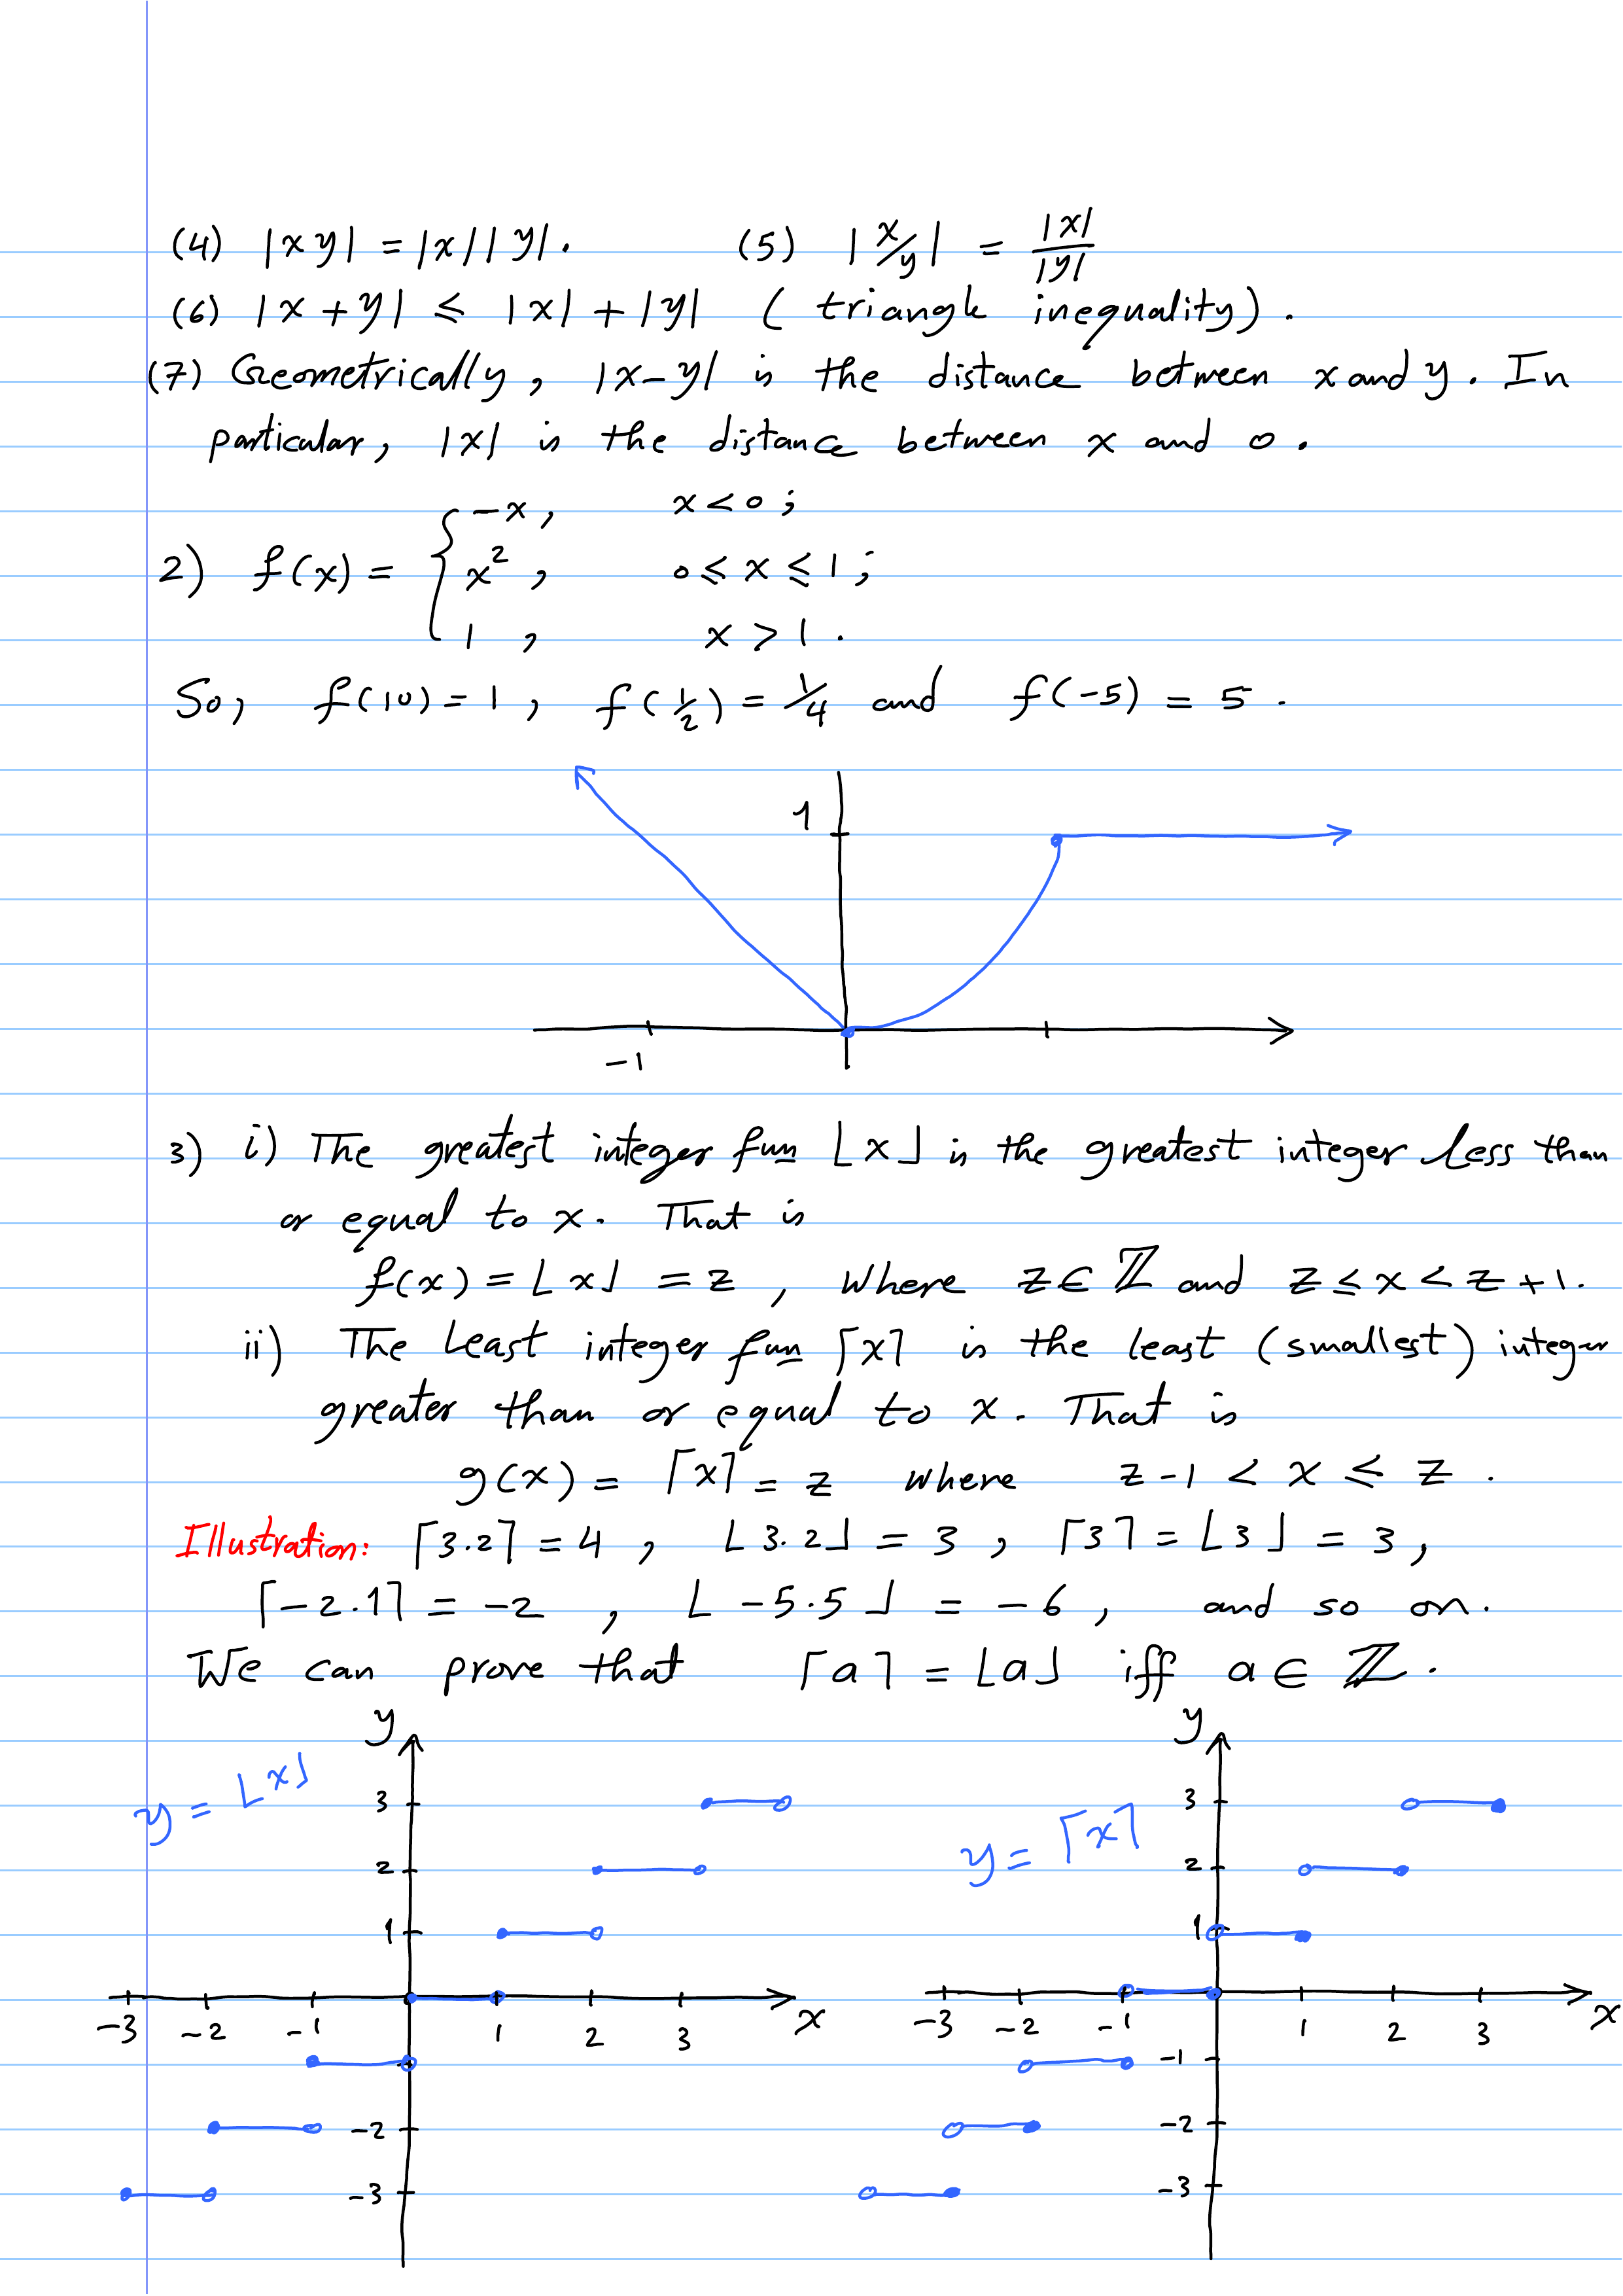 (4) |xy| = |x||y|. (5) |x/y| = |x|/|y|
(6) |x + y| ≤ |x| + |y| (triangle inequality).
(7) Geometrically, |x-y| is the distance between x and y. In
particular, |x| is the distance between x and 0.
2) f(x) = { -x, x < 0;
x², 0 ≤ x ≤ 1;
1, x > 1.
So, f(10) = 1, f(1/2) = 1/4 and f(-5) = 5.
1
-1
3) i) The greatest integer fun ⌊x⌋ is the greatest integer less than
or equal to x. That is
f(x) = ⌊x⌋ = z, where z ∈ ℤ and z ≤ x < z + 1.
ii) The least integer fun ⌈x⌉ is the least (smallest) integer
greater than or equal to x. That is
g(x) = ⌈x⌉ = z where z - 1 < x ≤ z.
Illustration: ⌈3.2⌉ = 4, ⌊3.2⌋ = 3, ⌈3⌉ = ⌊3⌋ = 3,
⌈-2.1⌉ = -2, ⌊-5.5⌋ = -6, and so on.
We can prove that ⌈a⌉ = ⌊a⌋ iff a ∈ ℤ.
y
y = ⌊x⌋
3
2
1
-3 -2 -1 1 2 3 x
-2
-3
y
y = ⌈x⌉
3
2
1
-3 -2 -1 1 2 3 x
-1
-2
-3